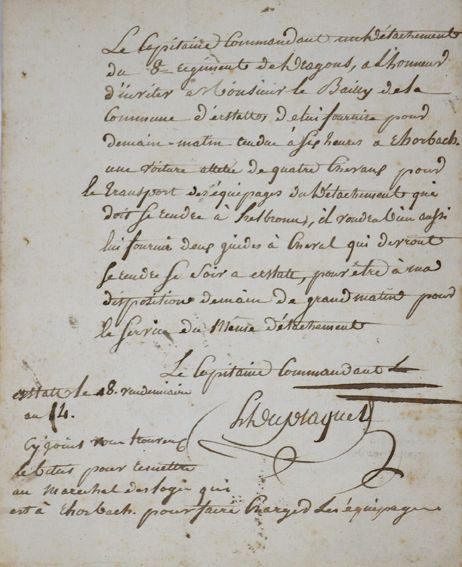 Le Capitaine Commandant un détachement
du 8e Régiment de Dragons, a l'honneur
d'inviter Monsieur le Bailly de la
Commune d'erstatte de lui fournir pour
demain matin rendue à six heures a horbach
une voiture attelée de quatre chevaux pour
le transport des équipages du détachement qui
doit se rendre à helbronn, il voudra bien aussi
lui fournir deux guides à cheval qui devront
se rendre ce soir a erstate, pour être à ma
disposition demain de grand matin pour
le service du même détachement
Le Capitaine Commandant
erstatt le 18. vendemiaire
au 14.
Cy joint vous trouverez
pour remettre
au marechal des logis qui
est à horbach pour faire charger les équipages